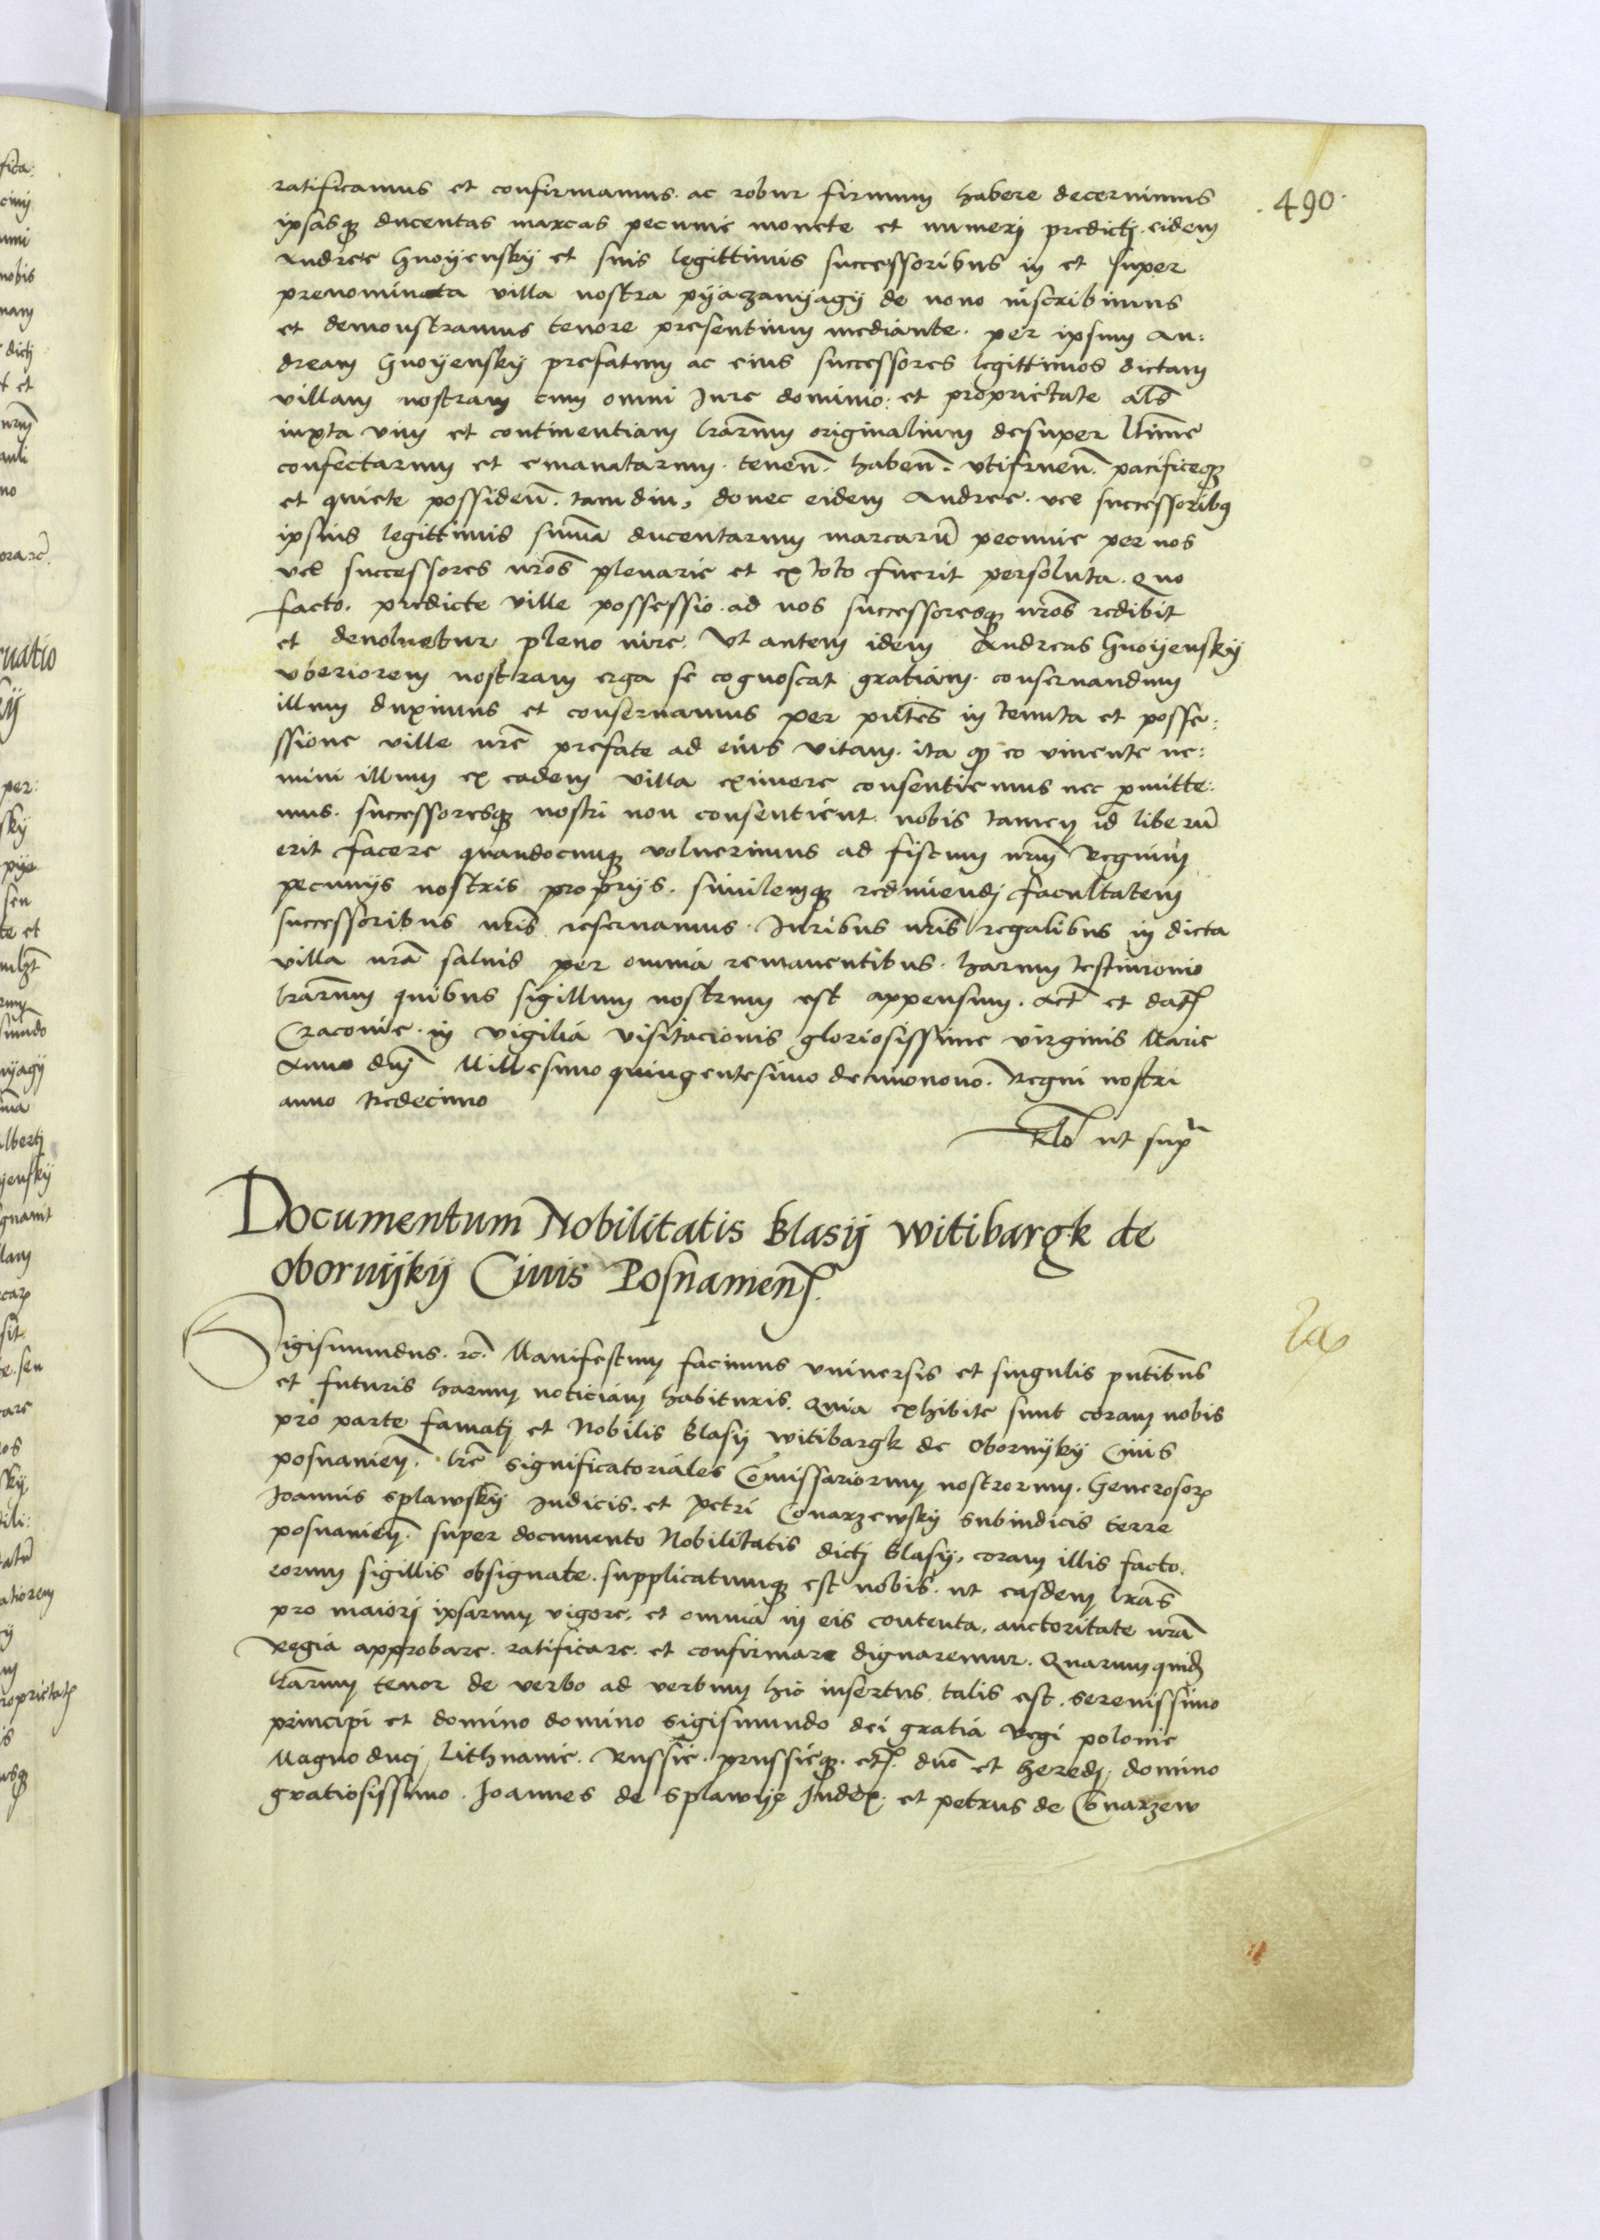 490
ratificamus et confirmamus ac robur firmum habere decernimus
ipsasq; ducentas marcas pecunie monete et numeri predictj eidem
Andree Gnoyensky et suis legittimis successoribus in et super
prenominata villa nostra pyaczanyagy de nono inscribimus
et demonstramus tenore presentium mediante. per ipsum An:
dream Gnoyensky prefatum ac eius successores legittimos dictam
villam nostram cum omni Jure dominio: et proprietate als
iuxta vim et continentiam lrarum originalium desuper
confectarum et emanatarum. tenen. haben. vtifruen. pacificeq;
et quiete possiden. tamdiu, donec eidem Andree. vel successoribus
ipsius legittimis summa ducentarum marcarum pecunie per nos
vel successores nros plenarie et ex toto fuerit persoluta. Quo
facto. predicte ville possessio ad nos successoresq; nros redibit
et devoluetur pleno iure. Ut autem idem Andreas Gnoyensky
vberiorem nostram erga se cognoscat gratiam. conseruandum
illum duximus et conseruamus per pntes in tenuta et posse:
ssione ville nre prefate ad eius vitam. ita q eo viuente ne:
mini illum ex eadem villa eximere consentiemus nec pmitte:
mus. successoresq; nostri non consentient. nobis tamen id liberu
erit facere quandocunq; voluerimus ad fiscum nrum Regium
pecunijs nostris proprijs. similemq; redimendj facultatem
successoribus nris reseruamus. Juribus nris regalibus in dicta
villa nra saluis per omnia remanentibus. harum testimonio
lrarum quibus sigillum nostrum est appensum. Act et dat
Cracovie. in vigilia visitacionis gloriosissime virginis Marie
Anno dnj Millesimo quingentesimo decimonono. Regni nostri
anno Tredecimo
Rlo ut supra
Documentum Nobilitatis Blasij witibargk de
obornijkij Ciuis Posnanien.
Sigismundus. rc. Manifestum facimus vniuersis et singulis pntibus
et futuris harum noticiam habituris. Quia exhibite sunt coram nobis
pro parte famatj et Nobilis Blasij witibargk de Obornijky Ciuis
posnanien. lre significatoriales Comissariorum nostrorum. Generosor
Joannis splawsky Judicis. et petri Conarzewsky subiudicis terre
posnanien. super documento Nobilitatis dictj Blasij, coram illis facto.
eorum sigillis obsignate. supplicatumq; est nobis. ut easdem lras
pro maiorj ipsarum vigore. et omnia in eis contenta. auctoritate nra
Regia approbare. ratificare. et confirmare dignaremur. Quarum quid
lrarum tenor de verbo ad verbum hic insertus talis est. Serenissimo
principi et domino domino sigismundo dei gratia Regi polonie
Magno ducj Lithuanie. Russie. prussieq. etc. dno et heredj. domino
gratiosissimo. Joannes de splawije Judex. et petrus de Conarzew